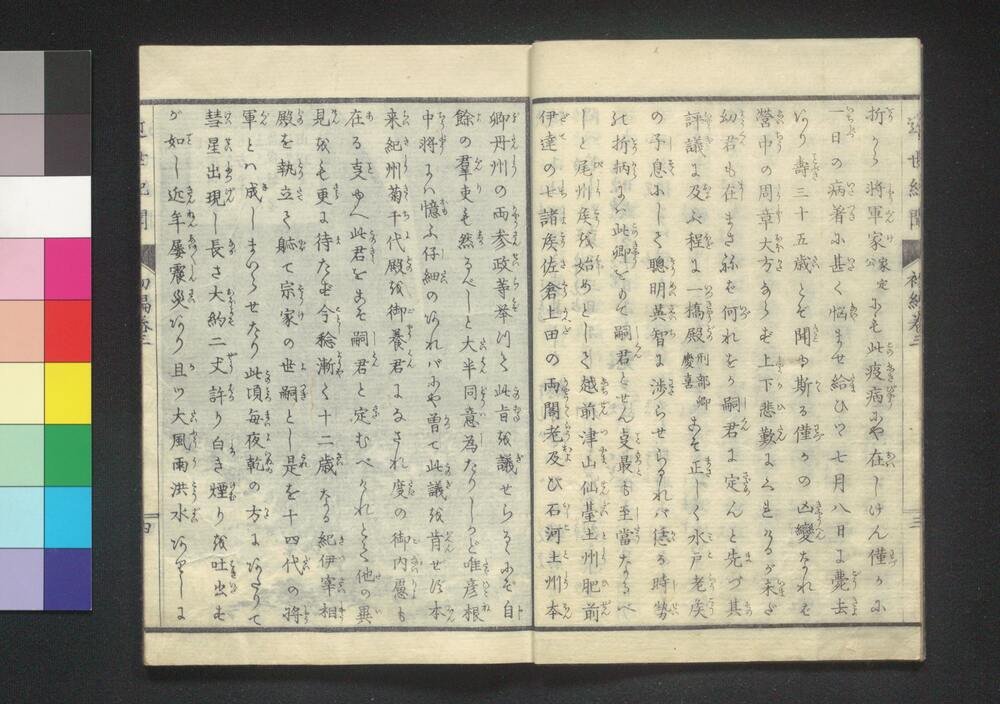 近世紀聞　初編巻三　三
折から将軍家家定公にも此疫病にや在しけん僅かに
一日の病著に甚く悩ませ給ひつ七月八日に薨去
あり寿三十五歳とぞ聞ゆ斯る僅かの凶變なれば
営中の周章大方ならず上下悲歎にくれけるが未だ
幼君も在まさねば何れをか嗣君に定んと先づ其
評議に及ぶ程に一橋殿刑部卿慶喜こそ正しく水戸老侯
の子息にして聰明英智に渉らせらるれバ係る時勢
の折柄にハ此卿をもて嗣君とせん叓最も至當なるべ
しと尾州侯を始めとして越前津山仙臺土州肥前
伊達の七諸侯佐倉上田の両閣老及び石河土州本
卿丹州の両参政等挙つて此旨を議せらるゝにぞ自
餘の群吏も然るべしと大半同意為たりしかど唯彦根
中将にハ憶ふ仔細のあれバにや曽て此議を肯せず本
来紀州菊千代殿を御養君になされ度の御内慮も
在る叓ゆへ此君をこそ嗣君と定むべけれとて他の異
見をも更に待たず今稔漸く十二歳なる紀伊宰相
殿を執立て躰て宗家の世嗣とし是を十四代の将
軍とハ成しまゐらせたり此頃毎夜乾の方にあたりて
彗星出現し長さ大約二丈許り白き煙りを吐出す
が如し近年屡震災あり且ツ大風雨洪水ありしに
近世紀聞　初編巻三　四